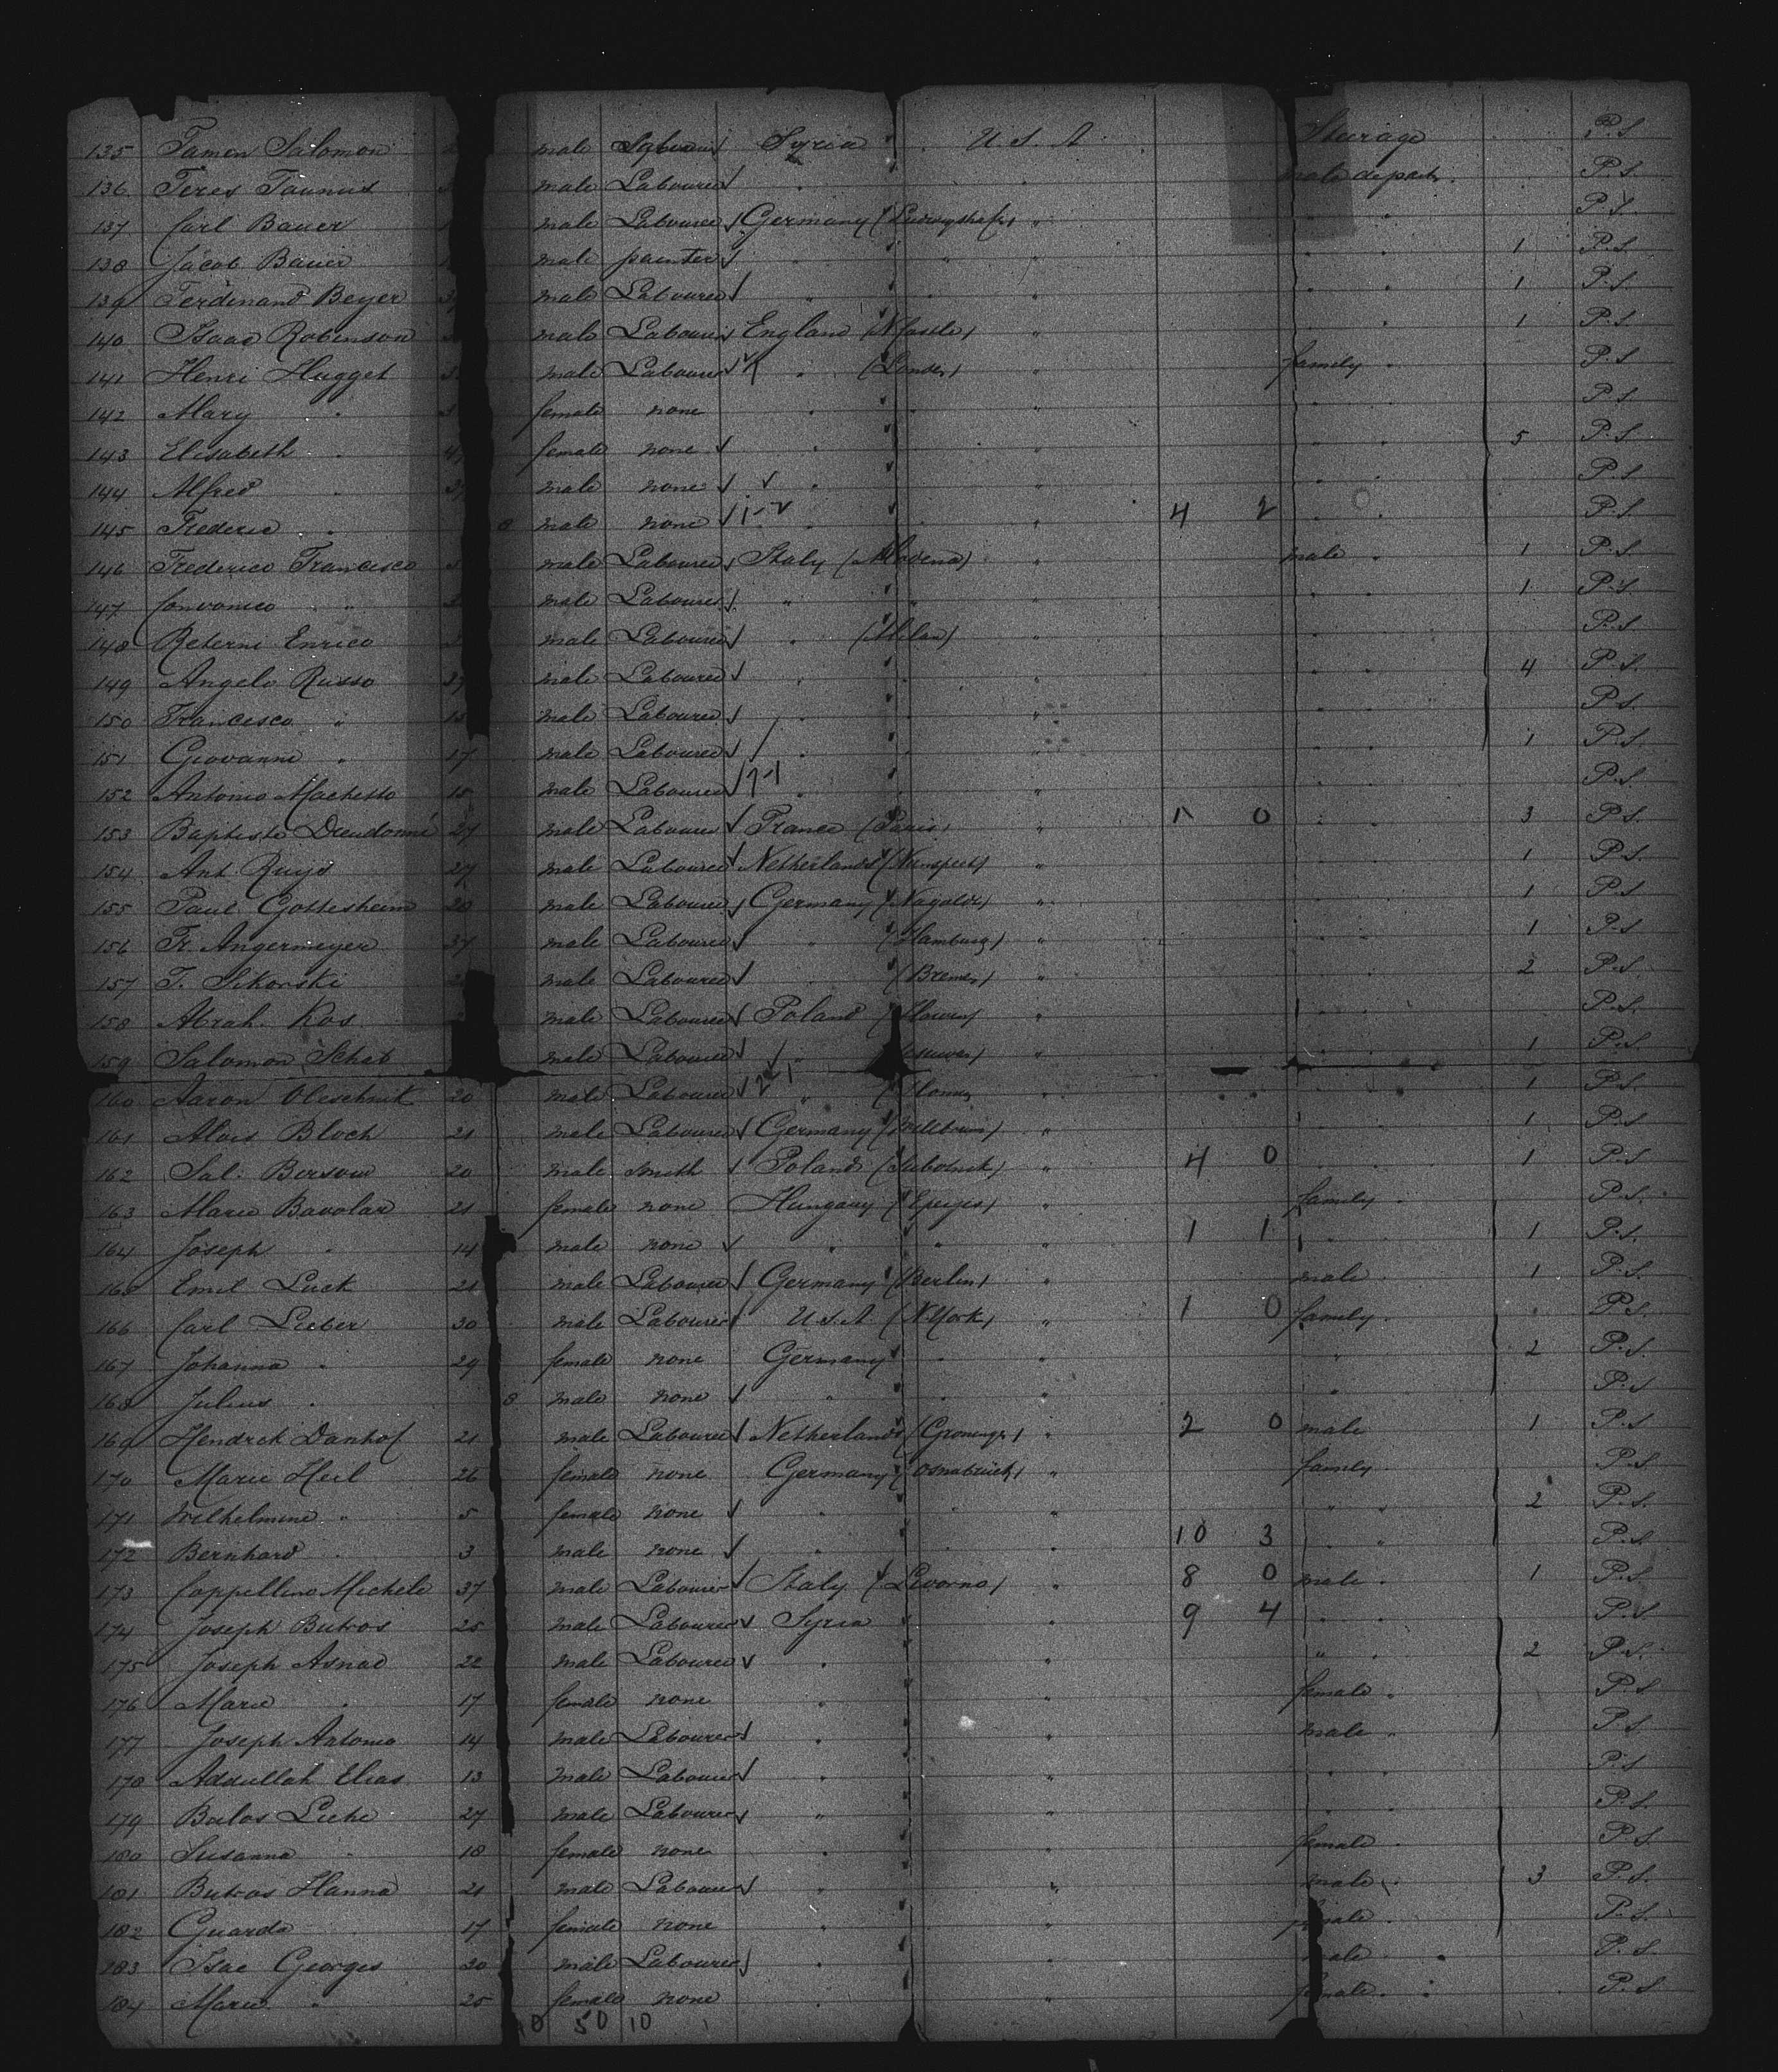 135 Tamen Salomon male Syria U. S. A Steerage P. S
136 Teres Taunus male Labourer " " male depart. P. S
137 Carl Bauer male Labourer Germany (Ludwigshafen) " " " P. S.
138 Jacob Bauer male painter " " " " " 1 P. S.
139 Ferdinand Beyer male Labourer " " " " " 1 P. S.
140 Isaac Robinson male Labourer England (N'Castle) " " 1 P. S.
141 Henri Hugget male Labourer " (London) " family " P. S
142 Mary " female none " " " " " P. S.
143 Elisabeth " female none " " " " 5 P. S.
144 Alfred " male none " " " " P. S.
145 Frederic " 8 male none 1-2 " " 4 2 " " P. S.
146 Frederico Francisco male Labourer Italy (Modena) " male " 1 P. S
147 " male Labourer " " " " 1 P. S
148 Enrico male Labourer " (Milan) " " " P. S
149 Angelo Russo 27 male Labourer " " " " 4 P. S.
150 Francesco " male Labourer " " " " P. S
151 Giovanni " 17 male Labourer " " " " 1 P. S.
152 Antonio Machetto 15 male Labourer " " " " P. S.
153 Baptiste Dieudonné 27 male Labourer France (Paris) " 1 0 " " 3 P. S.
154 Ant. Ruys 27 male Labourer Netherlands (Nunspeet) " " " 1 P. S
155 Paul Gottesheim 20 male Labourer Germany (Nagold) " " " 1 P. S
156 Fr. Angermeyer 37 male Labourer " (Hamburg) " " " 1 P. S
157 T. Sikorski male Labourer " (Bremen) " " " 2 P. S.
158 Abrah. Kos male Labourer Poland " P. S.
159 Salomon Schab male Labourer " " " " 1 P. S.
160 Aaron Oleschnik 20 male Labourer 2-1 " " " 1 P. S.
161 Alois Bloch 21 male Labourer Germany " " 1 P. S
162 Sal. Bersow 20 male smith Poland " 4 0 " 1 P. S
163 Marie Bavolar 21 female none Hungary (Eperjes) " family " P. S.
164 Joseph " 14 male none " " " 1 1 " 1 P. S.
165 Emil Luck 21 male Labourer Germany (Berlin) " male " 1 P. S.
166 Carl Lieber 30 male Labourer U. S. A (N. York) " 1 0 family " P. S.
167 Johanna " 29 female none Germany " " " 2 P. S.
168 Julius " 8 male none " " " " P. S
169 Hendrik Danhof 21 male Labourer Netherlands (Groningen) " 2 0 male 1 P. S
170 Marie Heil 26 female none Germany (Osnabrück) " family " P. S
171 Wilhelmine " 5 female none " " " " " 2 P. S.
172 Bernhard " 3 male none " " " 10 3 " " P. S.
173 Coppellino Michele 37 male Labourer Italy (Livorno) " 8 0 male " 1 P. S
174 Joseph Butros 25 male Labourer Syria " 9 4 " " P. S
175 Joseph Asnad 22 male Labourer " " " " 2 P. S.
176 Marie " 17 female none " " female " P. S
177 Joseph Antonio 14 male Labourer " " male " P. S
178 Abdullah Elias 13 male Labourer " " " " P. S
179 Bulos Liche 27 male Labourer " " " " P. S.
180 Susanna " 18 female none " " female " P. S
181 Butros Hanna 21 male Labourer " " male " 3 P. S.
182 Guarda 17 female none " " female " P. S.
183 Isac Georges 30 male Labourer " " male " P. S.
184 Marie " 25 female none " " female " P. S
50 10